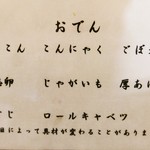 おでん
こん こんにゃく ごぼ
卵 じゃがいも 厚あげ
じ ロールキャベツ
日によって具材が変わることがありま